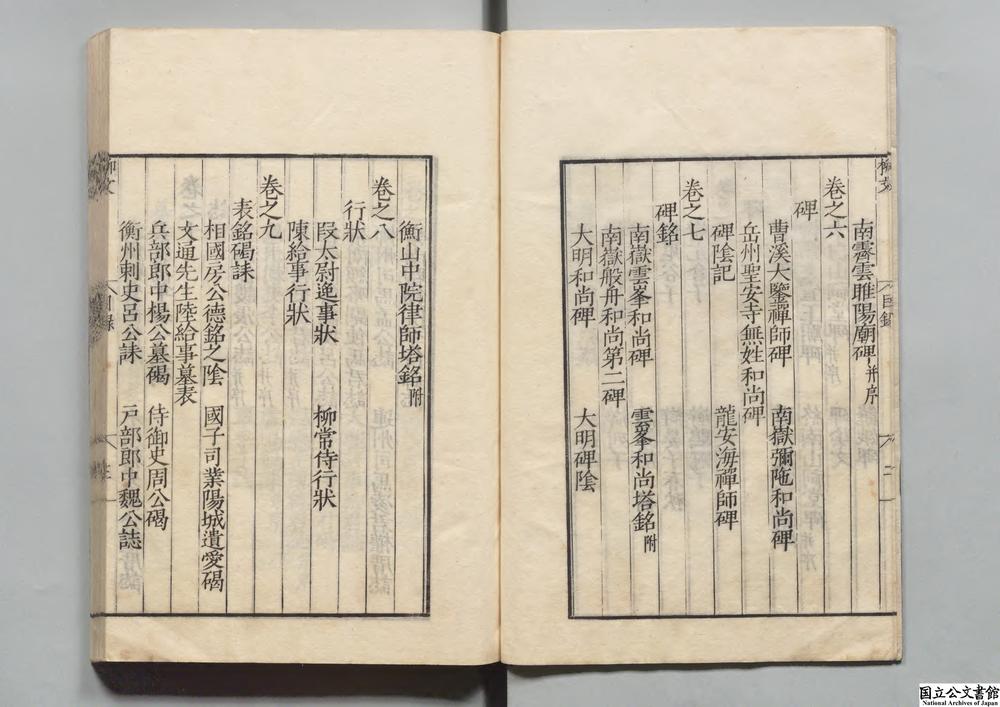 南霽雲睢陽廟碑并序
卷之六
碑
曹溪大鑒禪師碑　南嶽彌陁和尚碑
岳州聖安寺無姓和尚碑
碑陰記　龍安海禪師碑
卷之七
碑銘
南嶽雲峯和尚碑　雲峯和尚塔銘附
南嶽般舟和尚第二碑
大明和尚碑　大明碑陰
衡山中院律師塔銘附
卷之八
行狀
段太尉逸事狀　柳常侍行狀
陳給事行狀
卷之九
表銘碣誄
相國房公德銘之陰　國子司業陽城遺愛碣
文通先生陸給事墓表
兵部郎中楊公墓碣　侍御史周公碣
衡州刺史呂公誄　戸部郎中魏公誌
国立公文書館
National Archives of Japan